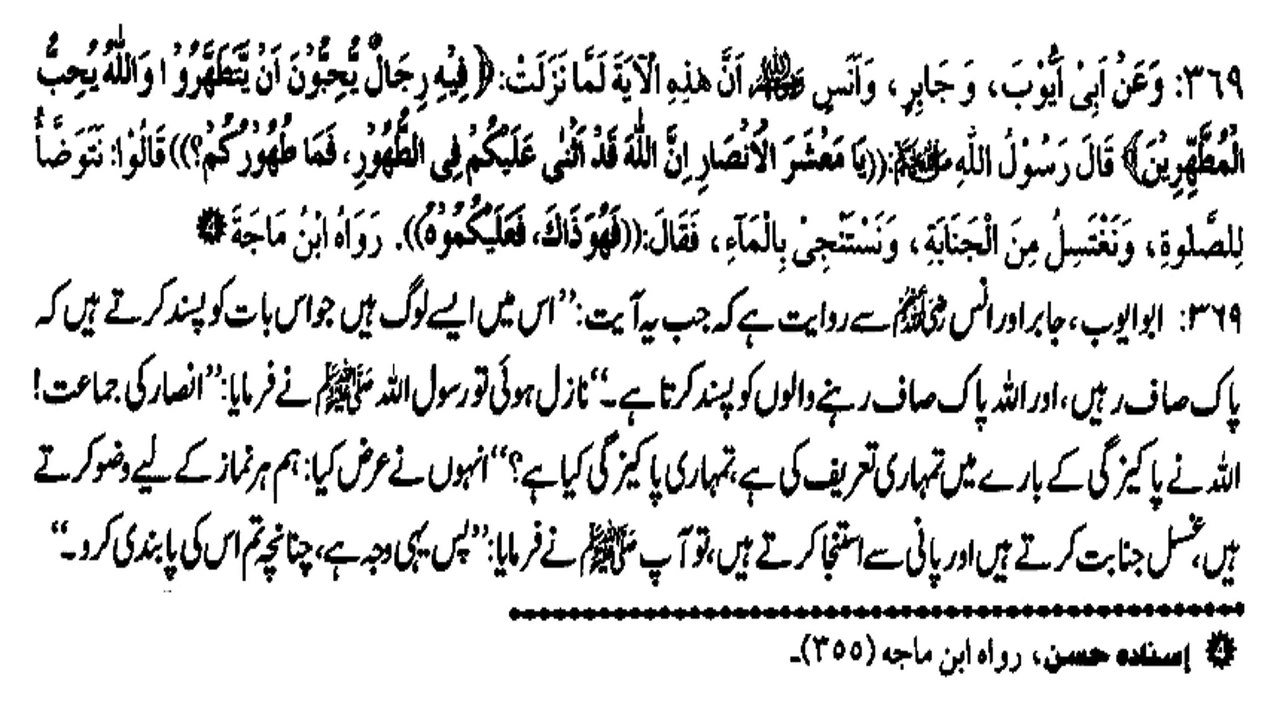 ٣٦٩: وَعَنْ اَبِیْ اَیُّوْبَ، وَ جَابِرٍ، وَاَنَسٍ ﷢ اَنَّ هٰذِهِ الْاٰیَةَ لَمَّا نَزَلَتْ: ﴿فِیْهِ رِجَالٌ یُّحِبُّوْنَ اَنْ یَّتَطَهَّرُوْا وَاللّٰهُ یُحِبُّ
الْمُطَّهِّرِیْنَ﴾ قَالَ رَسُوْلُ اللّٰهِ ﷺ: ((یَا مَعْشَرَ الْاَنْصَارِ اِنَّ اللّٰهَ قَدْ اَثْنٰی عَلَیْکُمْ فِی الطُّهُوْرِ، فَمَا طُهُوْرُکُمْ؟)) قَالُوْا: نَتَوَضَّأُ
لِلصَّلٰوةِ، وَنَغْتَسِلُ مِنَ الْجَنَابَةِ، وَنَسْتَنْجِیْ بِالْمَآءِ، فَقَالَ: ((فَهُوَ ذَاكَ، فَعَلَیْکُمُوْهُ)). رَوَاهُ ابْنُ مَاجَةَ ٤
٣٦٩: ابوایوب، جابر اور انس ﷢ سے روایت ہے کہ جب یہ آیت: ’’اس میں ایسے لوگ ہیں جو اس بات کو پسند کرتے ہیں کہ
پاک صاف رہیں، اور اللہ پاک صاف رہنے والوں کو پسند کرتا ہے۔‘‘ نازل ہوئی تو رسول اللہ ﷺ نے فرمایا: ’’انصار کی جماعت!
اللہ نے پاکیزگی کے بارے میں تمہاری تعریف کی ہے، تمہاری پاکیزگی کیا ہے؟‘‘ انہوں نے عرض کیا: ہم ہر نماز کے لیے وضو کرتے
ہیں، غسل جنابت کرتے ہیں اور پانی سے استنجا کرتے ہیں، تو آپ ﷺ نے فرمایا: ’’پس یہی وجہ ہے، چنانچہ تم اس کی پابندی کرو۔‘‘
٤ إسناده حسن، رواه ابن ماجه (٣٥٥)۔